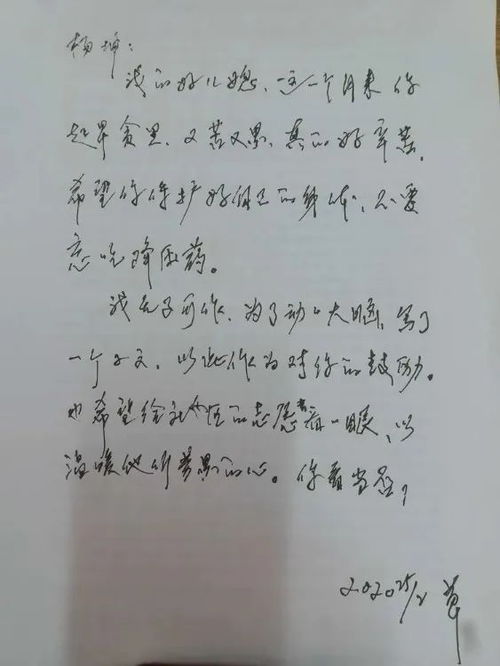 杨坤：
我的好儿媳，这一个月来你
起早贪黑，又苦又累，真的好辛苦。
希望你保护好自己的身体，不要
忘吃降压药。
我无事可作，为了动动大脑，写了
一个小文，以此作为对你的鼓励。
也希望给社区的志愿者看一眼，以
温暖他们劳累的心。你看当否？